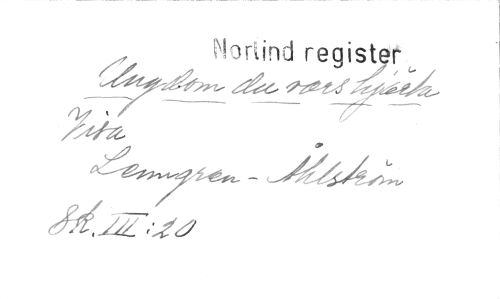 Norlind register
Ungdom du vars hjärta
Visa
Lenngren - Åhlström
Sk. III : 20